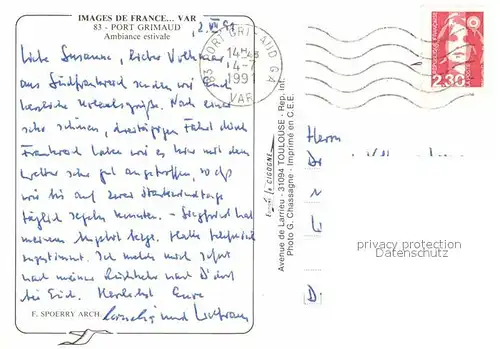 IMAGES DE FRANCE... VAR
83 - PORT GRIMAUD
Ambiance estivale
Liebe Susanne, lieber Volkmar
aus Südfrankreich senden wir euch
herzliche Urlaubsgrüße. Nach einer
sehr schönen, dreitägigen Fahrt durch
Frankreich haben wir es hier mit dem
Wetter sehr gut angetroffen, so dass
wir bis auf zwei Starkwindtage
täglich segeln konnten. - Siegfried hat
meinem Angebot bzgl.
zugestimmt. Ich melde mich sofort
nach meiner Rückkehr nach D'dorf
bei Euch. Herzlichst Eure
F. SPOERRY ARCH. und
83 PORT GRIMAUD GA
14H45
4-7
1991
VAR
RÉPUBLIQUE FRANÇAISE
2.30
Avenue de Larrieu - 31094 TOULOUSE - Rep. Int.
Photo G. Chassagne Imprimé en C.E.E.
Herrn
D
privacy protection
Datenschutz